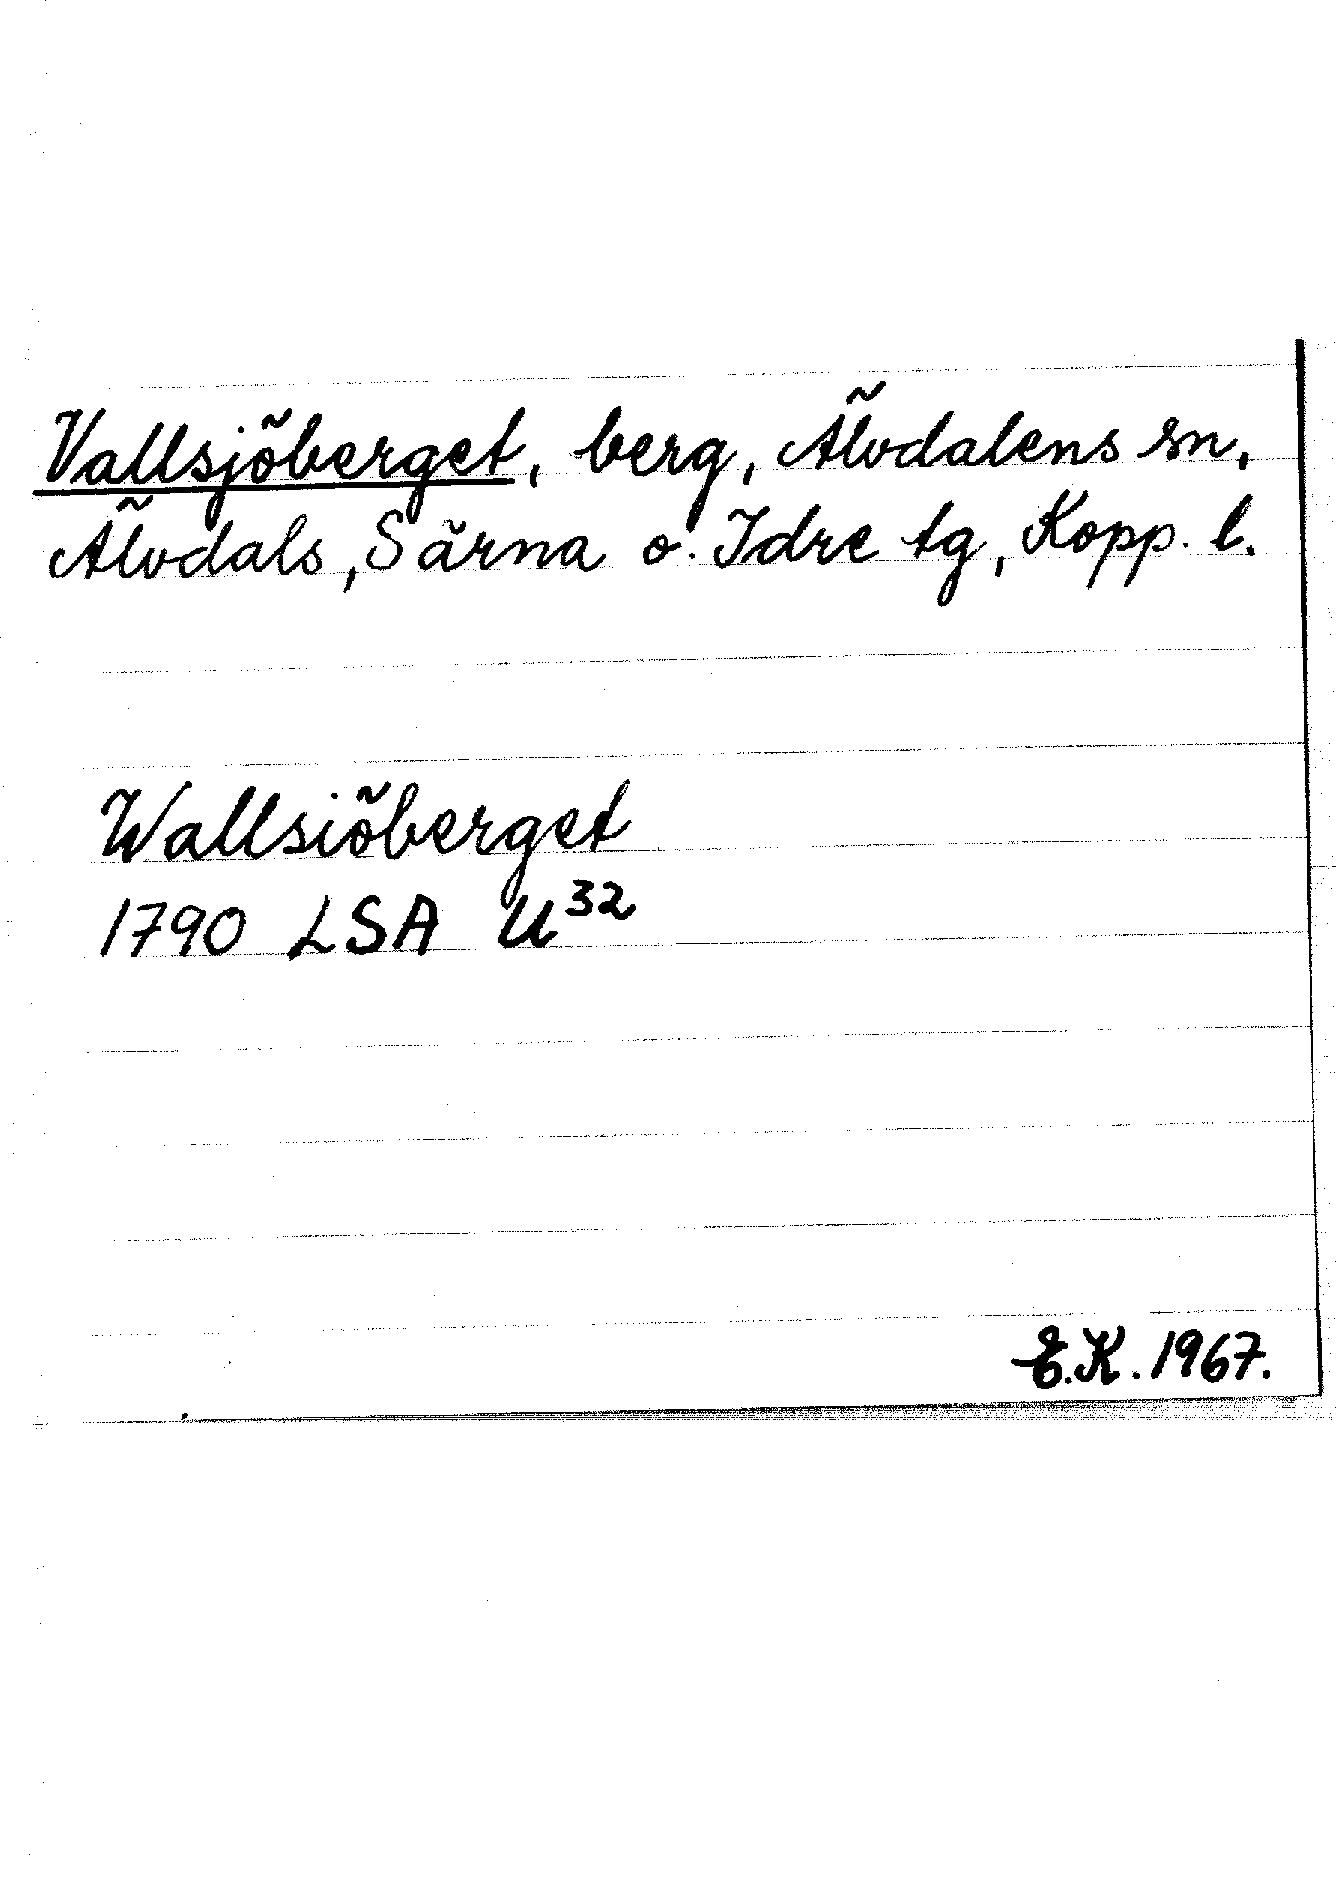 Vallsjöberget, berg, Älvdalens sn,
Älvdals, Särna o. Idre tg, Kopp. l.
Wallsiöberget
1790 LSA U³²
E.K. 1967.